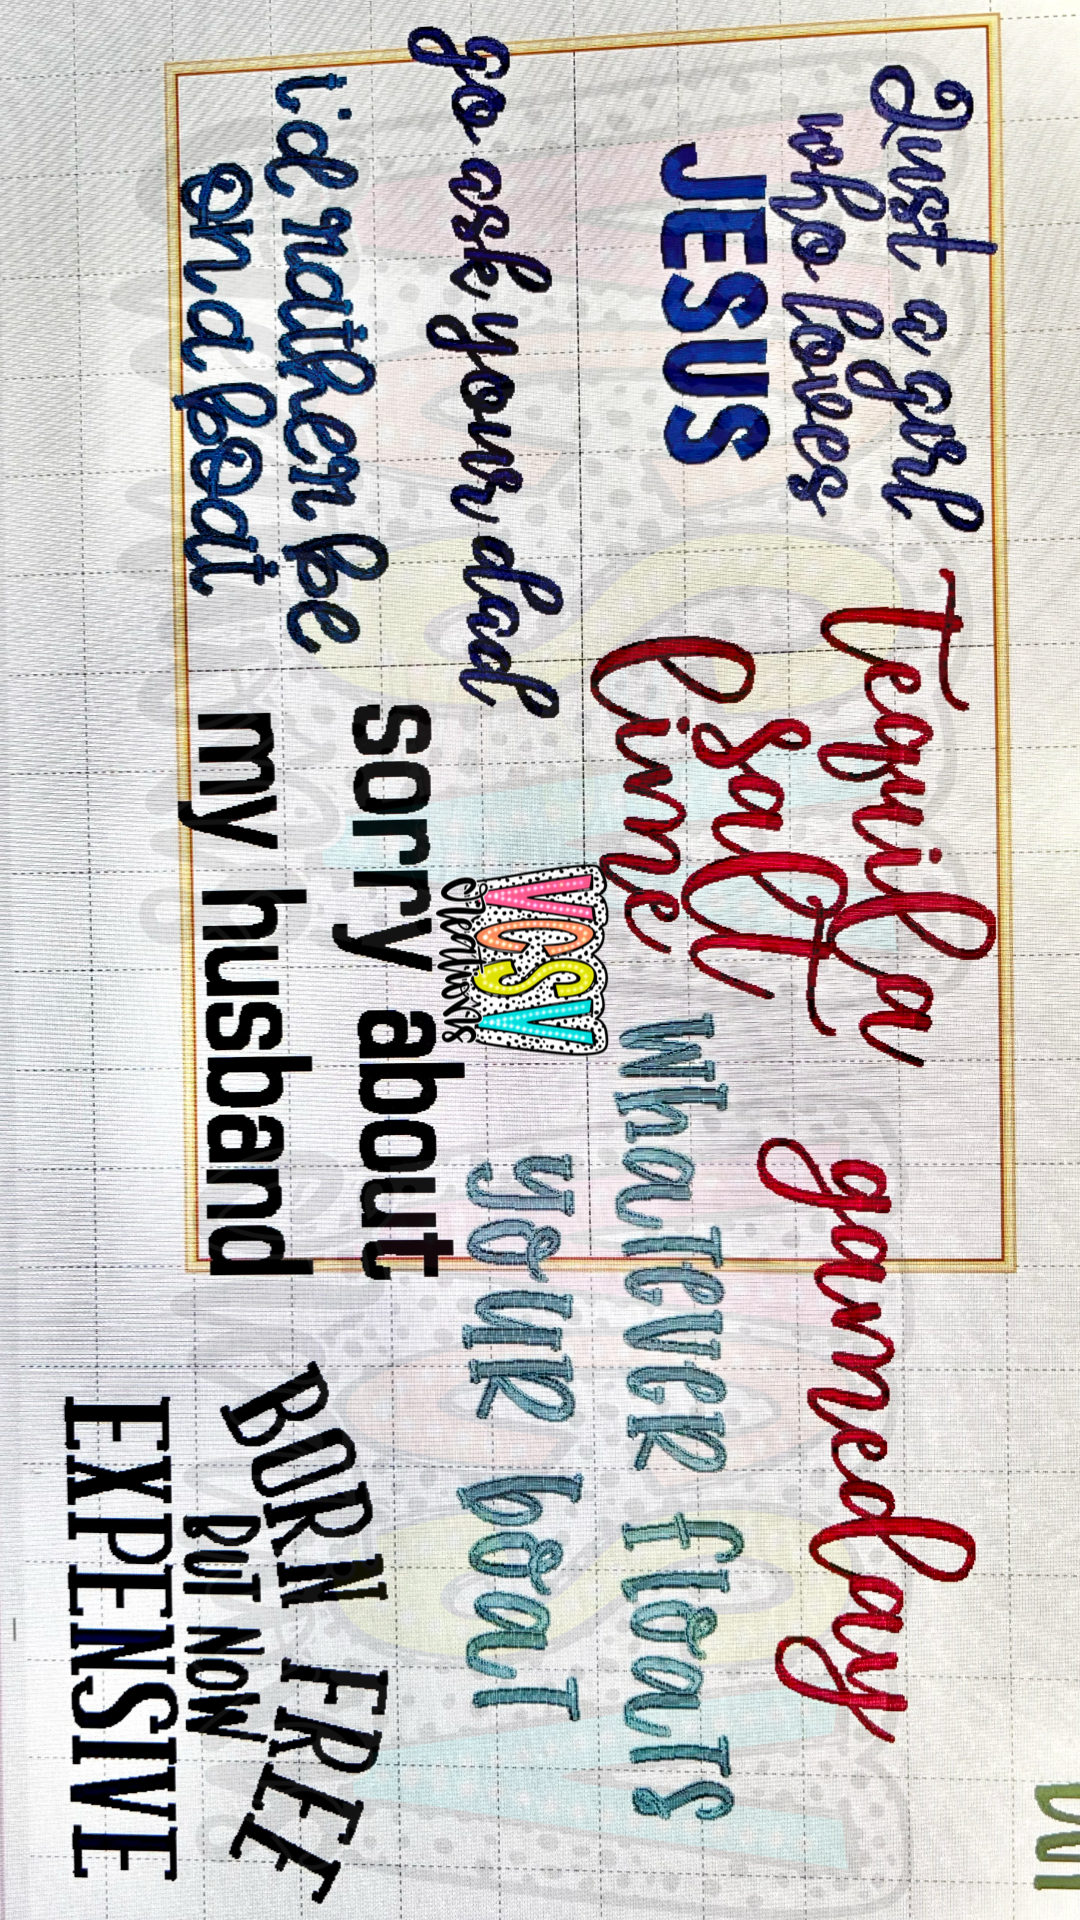 Just a girl
who loves
JESUS
go ask your dad
i'd rather be
on a boat
Tequila
salt
lime
sorry about
my husband
VCSV
creations
gameday
whatever floats
your boat
BORN FREE
BUT NOW
EXPENSIVE